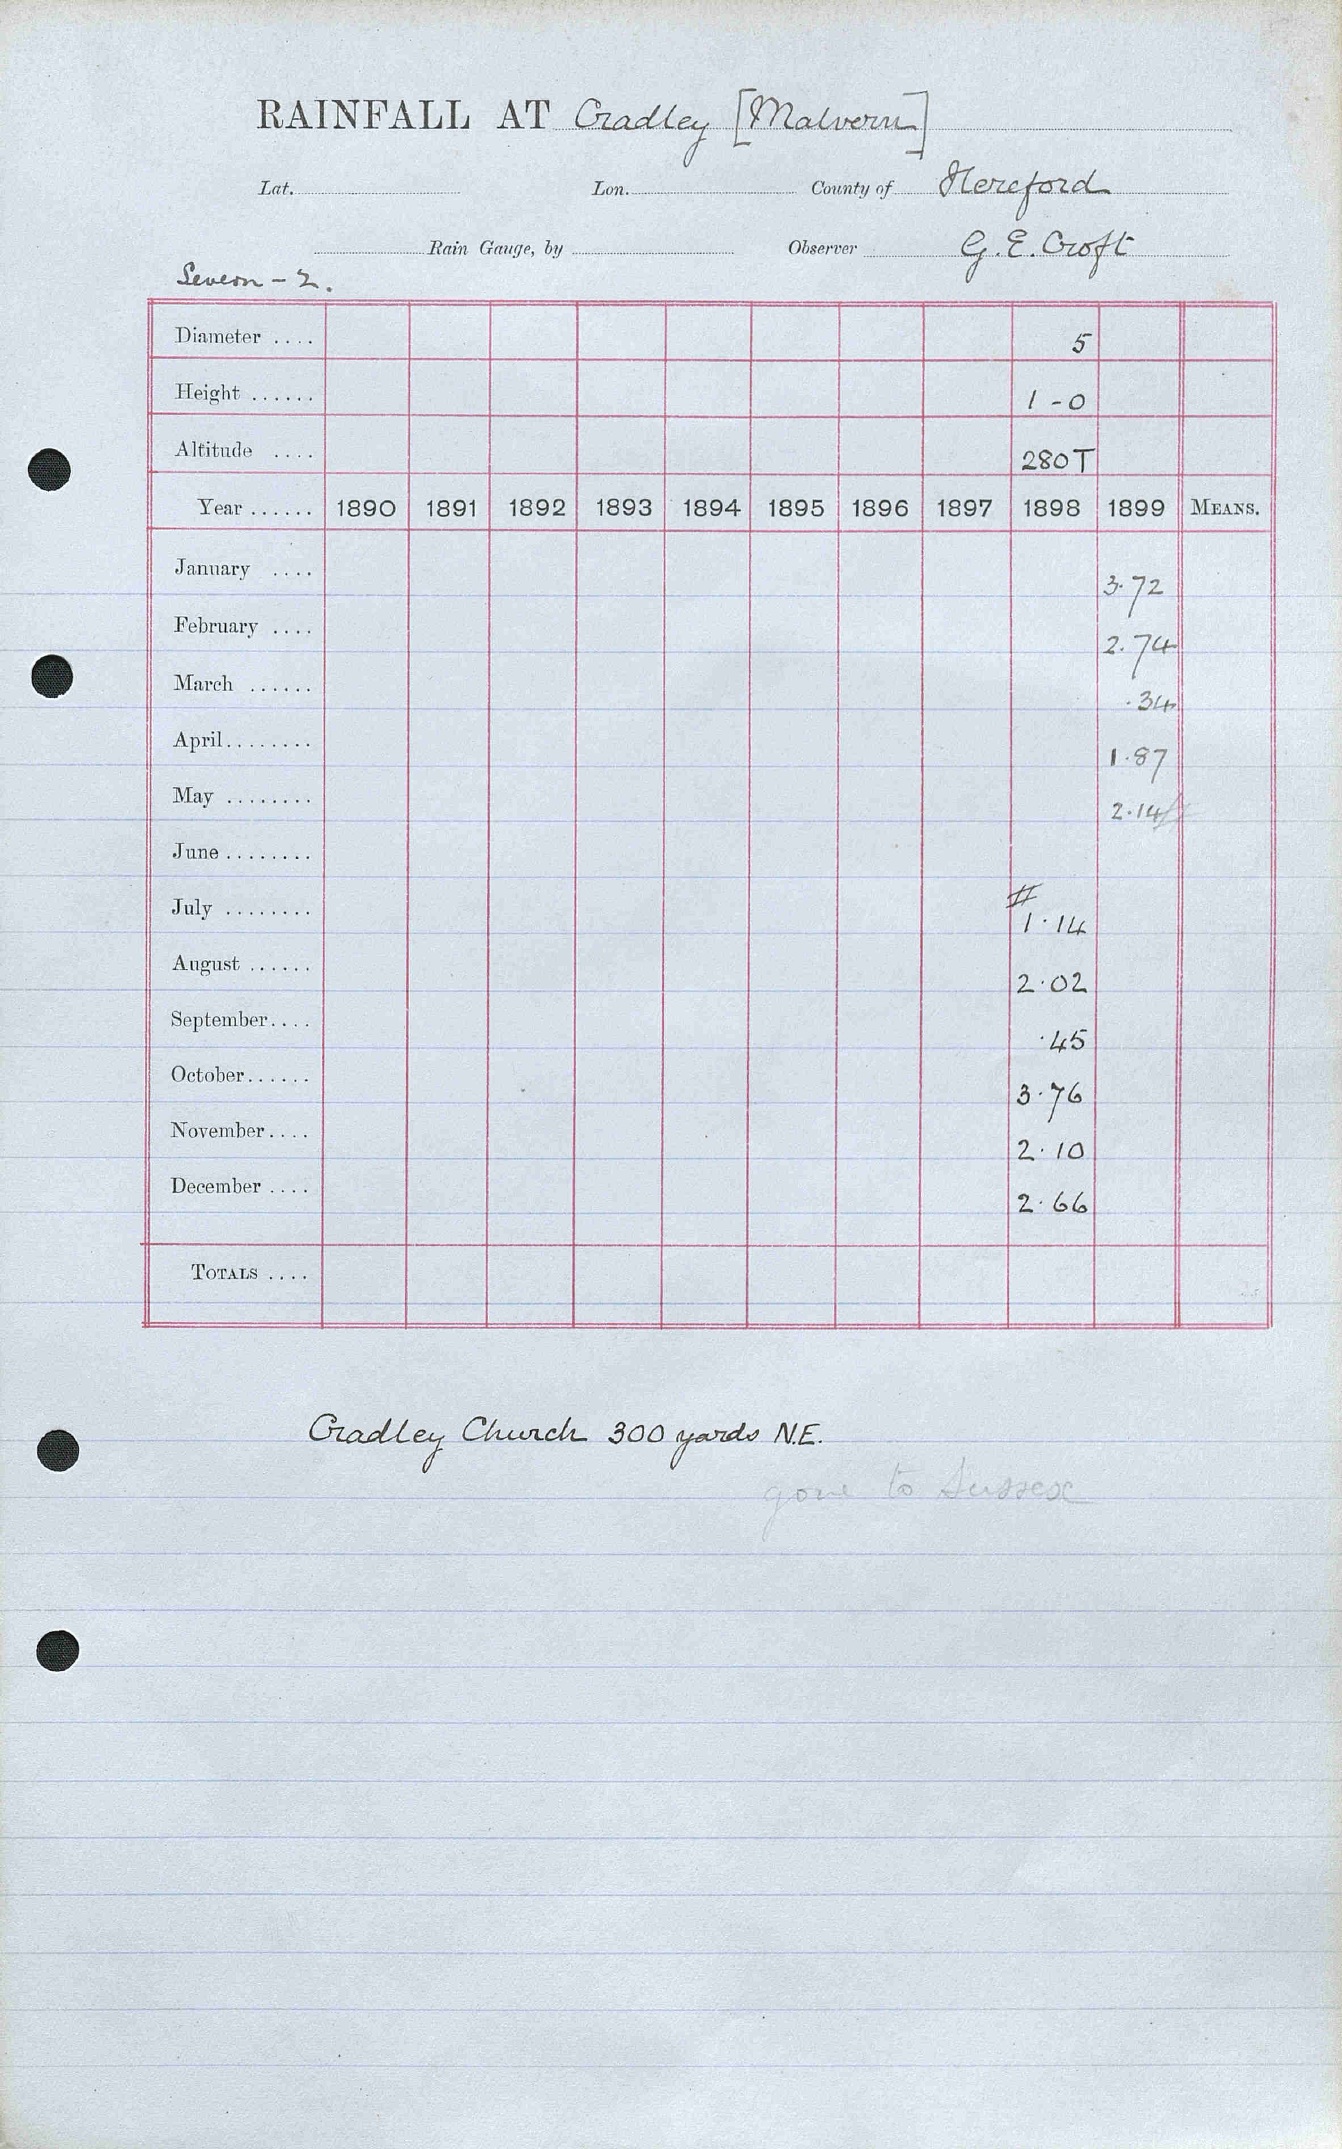 RAINFALL AT Cradley [Malvern]
Lat. Lon. County of Hereford
Rain Gauge, by Observer G. E. Croft
Severn - 2.
Diameter .... 5
Height ...... 1 - 0
Altitude .... 280T
Year ...... 1890 1891 1892 1893 1894 1895 1896 1897 1898 1899 MEANS.
January .... 3.72
February .... 2.74
March ...... .34
April........ 1.87
May ........ 2.14
June ........
July ........ # 1.14
August ...... 2.02
September.... .45
October...... 3.76
November.... 2.10
December .... 2.66
TOTALS ....
Cradley Church 300 yards N.E.
gone to Sussex